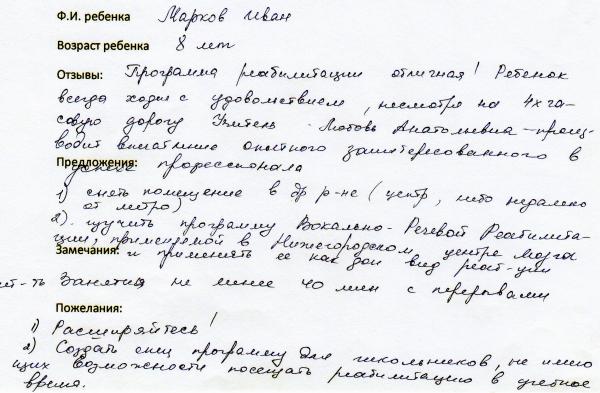 Ф.И. ребенка Марков Иван
Возраст ребенка 8 лет
Отзывы: Программа реабилитации отличная! Ребенок
всегда ходил с удовольствием, несмотря на 4х ча-
совую дорогу Учитель - Любовь Анатольевна - произ-
водит впечатление опытного заинтересованного в
Предложения: успехе профессионала
1) снять помещение в др р-не (центр, либо недалеко
от метро)
2). изучить программу Вокально-Речевой Реабилита-
ции, применяемой в Нижегородском центре мозга
Замечания: и применять ее как доп вид реаб-ции
Занятия не менее 40 мин с перерывами
Пожелания:
1) Расширяйтесь!
2) Создать спец программу для школьников, не имею
щих возможности посещать реабилитацию в учебное
время.